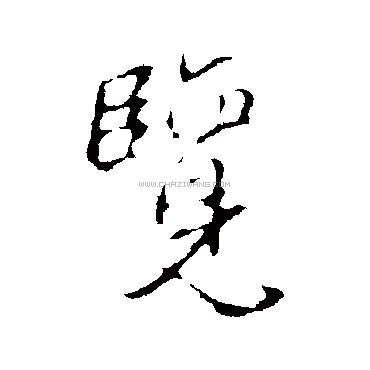 覽
WWW.CHAZIWANG.COM